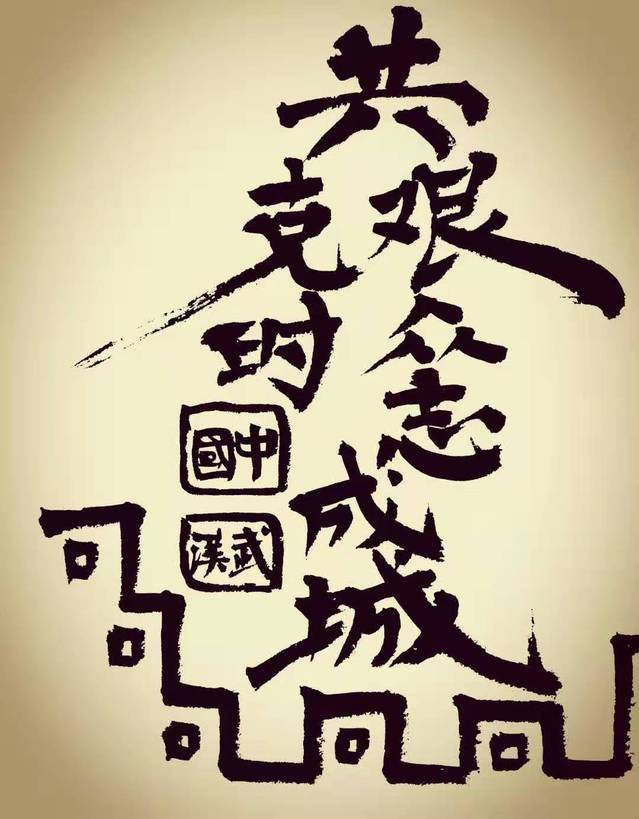 共克时艰
众志成城
中國
武漢